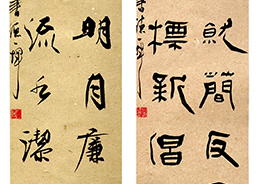 就簡反
標新倡
明月廉
流水潔